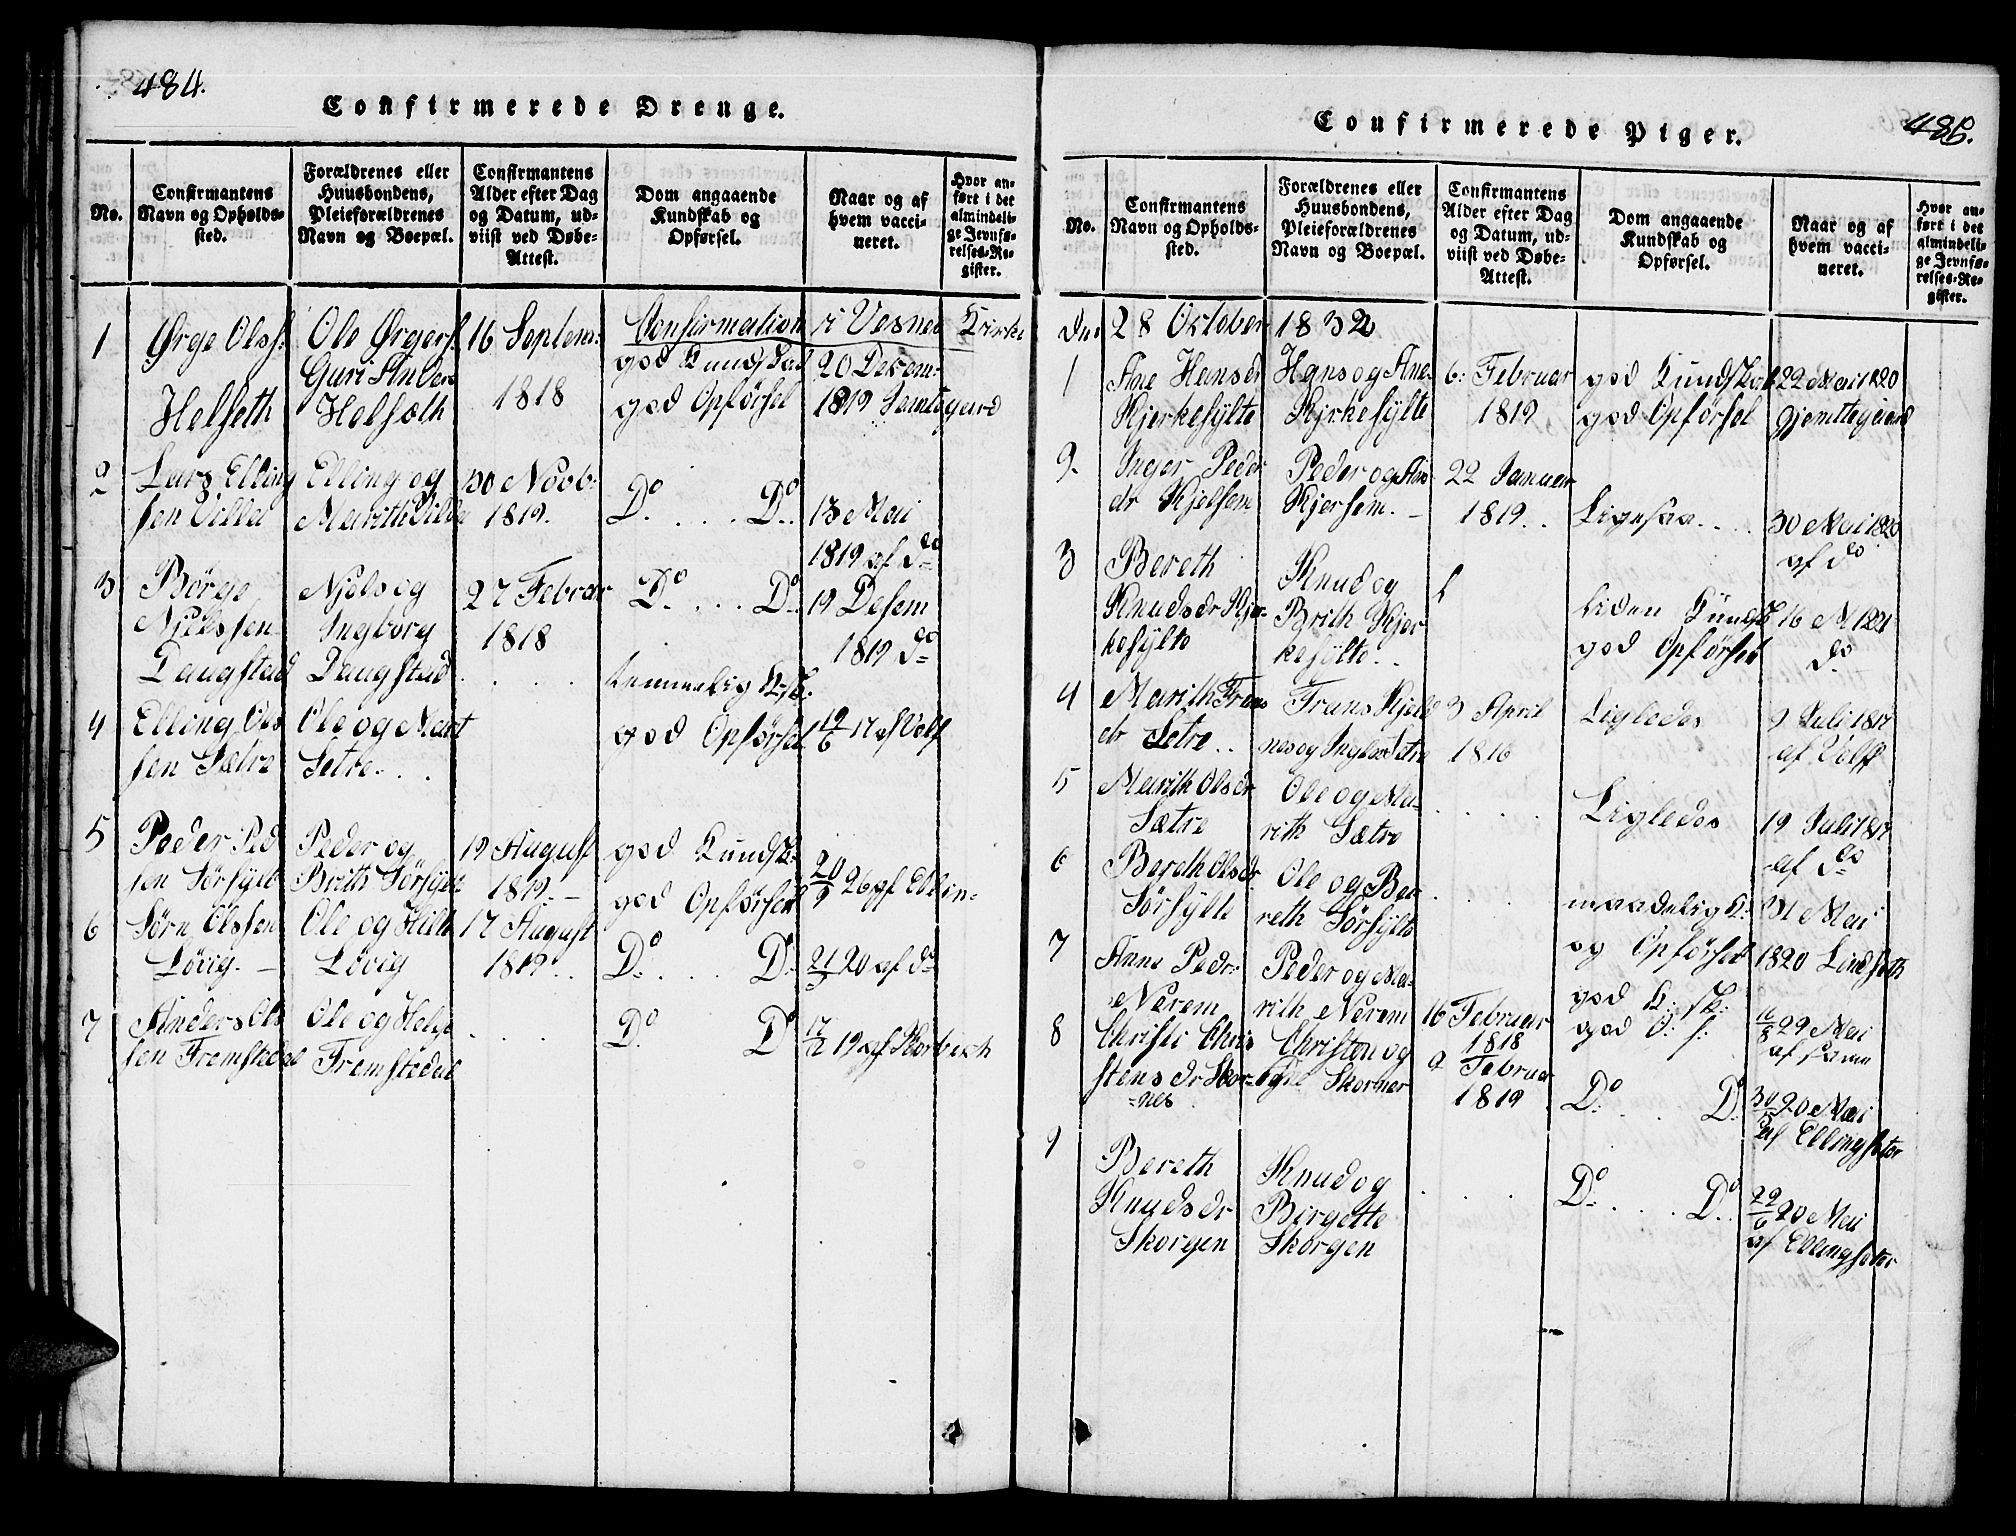 484.
Confirmerede Drenge.
No.
Confirmantens
Navn og Opholds-
sted.
Forældrenes eller
Huusbondens,
Pleieforældrenes
Navn og Boepæl.
Confirmantens
Alder efter Dag
og Datum, ud-
viist ved Døbe-
Attest.
Dom angaaende
Kundskab og
Opførsel.
Naar og af
hvem vacci-
neret.
Hvor an-
ført i det
almindeli-
ge Jevnfø-
relses-Re-
gister.
Confirmation i Vesnes Kirke
1
Ørge Olss:
Helseth
Ole Ørgers
Guri Anders
Helsæth
16 Septem:
1818
god Kundskab
god Opførsel
20 Decem:
1819
2
Lars Elling
sen Villa
Elling og
Marith Villa
30 Novb:
1819.
Do . . . . Do.
13 Mai
1819 af do
3
Børge
Njelssen
Daugstad
Njels og
Ingborg
Daugstad
27 Februar
1818
Do . . . . Do.
19 Desem
1819 do
4
Elling Ols
sen Sætre
Ole og Marit
Setre . . .
. . . .
temmelig K:sk:
god Opførsel
19/6 17 af Volf
5
Peder Ped
sen Sørsylt
Peder og
Brith Sørsylt
19 August
1819. -
god Kundsk:
god Opførsel
20/9 26 af Ellin-
6
Sørn Olssen
Løvig. -
Ole og
Løvig
17 August
1819 . .
Do . . . . Do
21/5 20 af do
7
Anders Ols
sen Fremstedal
Ole og
Fremstedal
. . . .
Do Do
17/12 19 af
486.
Confirmerede Piger.
No.
Confirmantens
Navn og Opholds-
sted.
Forældrenes eller
Huusbondens,
Pleieforældrenes
Navn og Boepæl.
Confirmantens
Alder efter Dag
og Datum, ud-
viist ved Døbe-
Attest.
Dom angaaende
Kundskab og
Opførsel.
Naar og af
hvem vacci-
neret.
Hvor an-
ført i det
almindeli-
ge Jevnfø-
relses-Re-
gister.
den 28 October 1832
1
Ane Hansdr
Kjerkesylte
Hans og Ane
Kjrkesylte
6: Februar
1819
god Kundskab
god Opførsel
22 Mai 1820
Gjemtegaard
2
Inger Peder
dr Kjelsem
Peder og Ane
Kjersem. -
22 Januar
1819 . .
Ligesaa . . . .
30 Mai 1820
af do
3
Bereth
Knudsdr Kjer-
kesylte
Knud og
Brith Kjer
kesylte . .
liden Kundsk
god Opførsel
16 M 1821
do
4
Marith Frans
dr Sætre . .
Frans Kjeld
nes og Sætre
3 April
1816
Ligledes
9 Juli 1817
af Volff
5
Marith Olsdr
Sætre
Ole og Ma-
rith Sætre
. . . .
Ligledes
19 Juli 1817
af do
6
Bereth Olsdr
Sørsylte
Ole og Be-
reth Sørsylte
. . . .
maadelig K:
og Opførsel
31 Mai
1820 Lindseth
7
Anne Pedr:
Nerem
Peder og Ma-
rith Nerem
16 Februar
1818
god K: sk:
god O: f:
29 Mai
af samme
8
Christi Chris
stensdr Skor-
=nes
Christen og
Skornes
9 Februar
1819
Do . . . . Do
30/5 20 Mai
af Ellingseter
9
Bereth
Knudsdr
Skorgen
Knud og
Birgette
Skorgen
. . . .
Do . . . . Do.
22/6 20 Mai
af Ellingseter